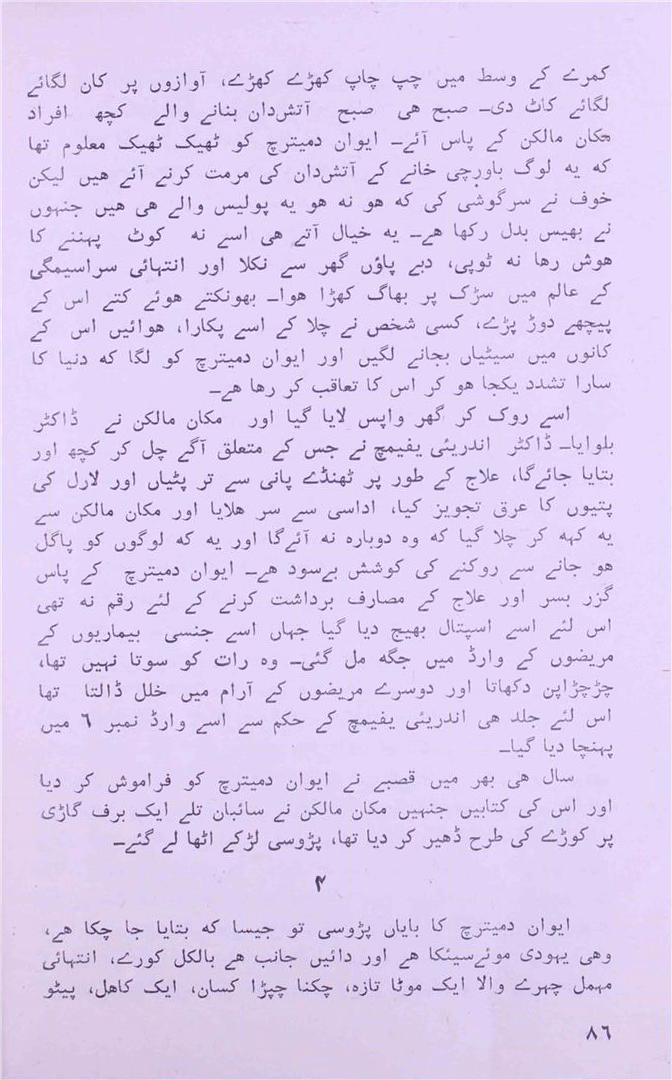 کمرے کے وسط میں چپ چاپ کھڑے کھڑے، آوازوں پر کان لگائے
لگائے کاٹ دی۔ صبح ھی صبح آتش‌دان بنانے والے کچھ افراد
مکان مالکن کے پاس آئے۔ ایوان دمیترچ کو ٹھیک ٹھیک معلوم تھا
که یه لوگ باورچی خانے کے آتش‌دان کی مرمت کرنے آئے ھیں لیکن
خوف نے سرگوشی کی که ھو نه ھو یه پولیس والے ھی ھیں جنہوں
نے بھیس بدل رکھا ھے۔ یه خیال آتے ھی اسے نه کوٹ پہننے کا
ھوش رھا نه ٹوپی، دبے پاؤں گھر سے نکلا اور انتہائی سراسیمگی
کے عالم میں سڑک پر بھاگ کھڑا ھوا۔ بھونکتے ھوئے کتے اس کے
پیچھے دوڑ پڑے، کسی شخص نے چلا کے اسے پکارا، ھوائیں اس کے
کانوں میں سیٹیاں بجانے لگیں اور ایوان دمیترچ کو لگا که دنیا کا
سارا تشدد یکجا ھو کر اس کا تعاقب کر رھا ھے۔
اسے روک کر گھر واپس لایا گیا اور مکان مالکن نے ڈاکٹر
بلوایا۔ ڈاکٹر اندریئی یفیمچ نے جس کے متعلق آگے چل کر کچھ اور
بتایا جائے‌گا، علاج کے طور پر ٹھنڈے پانی سے تر پٹیاں اور لارل کی
پتیوں کا عرق تجویز کیا، اداسی سے سر ھلایا اور مکان مالکن سے
یه کہه کر چلا گیا که وہ دوبارہ نه آئے‌گا اور یه که لوگوں کو پاگل
ھو جانے سے روکنے کی کوشش بے‌سود ھے۔ ایوان دمیترچ کے پاس
گزر بسر اور علاج کے مصارف برداشت کرنے کے لئے رقم نه تھی
اس لئے اسے اسپتال بھیج دیا گیا جہاں اسے جنسی بیماریوں کے
مریضوں کے وارڈ میں جگه مل گئی۔ وہ رات کو سوتا نہیں تھا،
چڑچڑاپن دکھاتا اور دوسرے مریضوں کے آرام میں خلل ڈالتا تھا
اس لئے جلد ھی اندریئی یفیمچ کے حکم سے اسے وارڈ نمبر ٦ میں
پہنچا دیا گیا۔
سال ھی بھر میں قصبے نے ایوان دمیترچ کو فراموش کر دیا
اور اس کی کتابیں جنہیں مکان مالکن نے سائبان تلے ایک برف گاڑی
پر کوڑے کی طرح ڈھیر کر دیا تھا، پڑوسی لڑکے اٹھا لے گئے۔
۴
ایوان دمیترچ کا بایاں پڑوسی تو جیسا که بتایا جا چکا ھے،
وھی یہودی موئے‌سیئکا ھے اور دائیں جانب ھے بالکل کورے، انتہائی
مہمل چہرے والا ایک موٹا تازہ، چکنا چپڑا کسان، ایک کاھل، پیٹو
٨٦